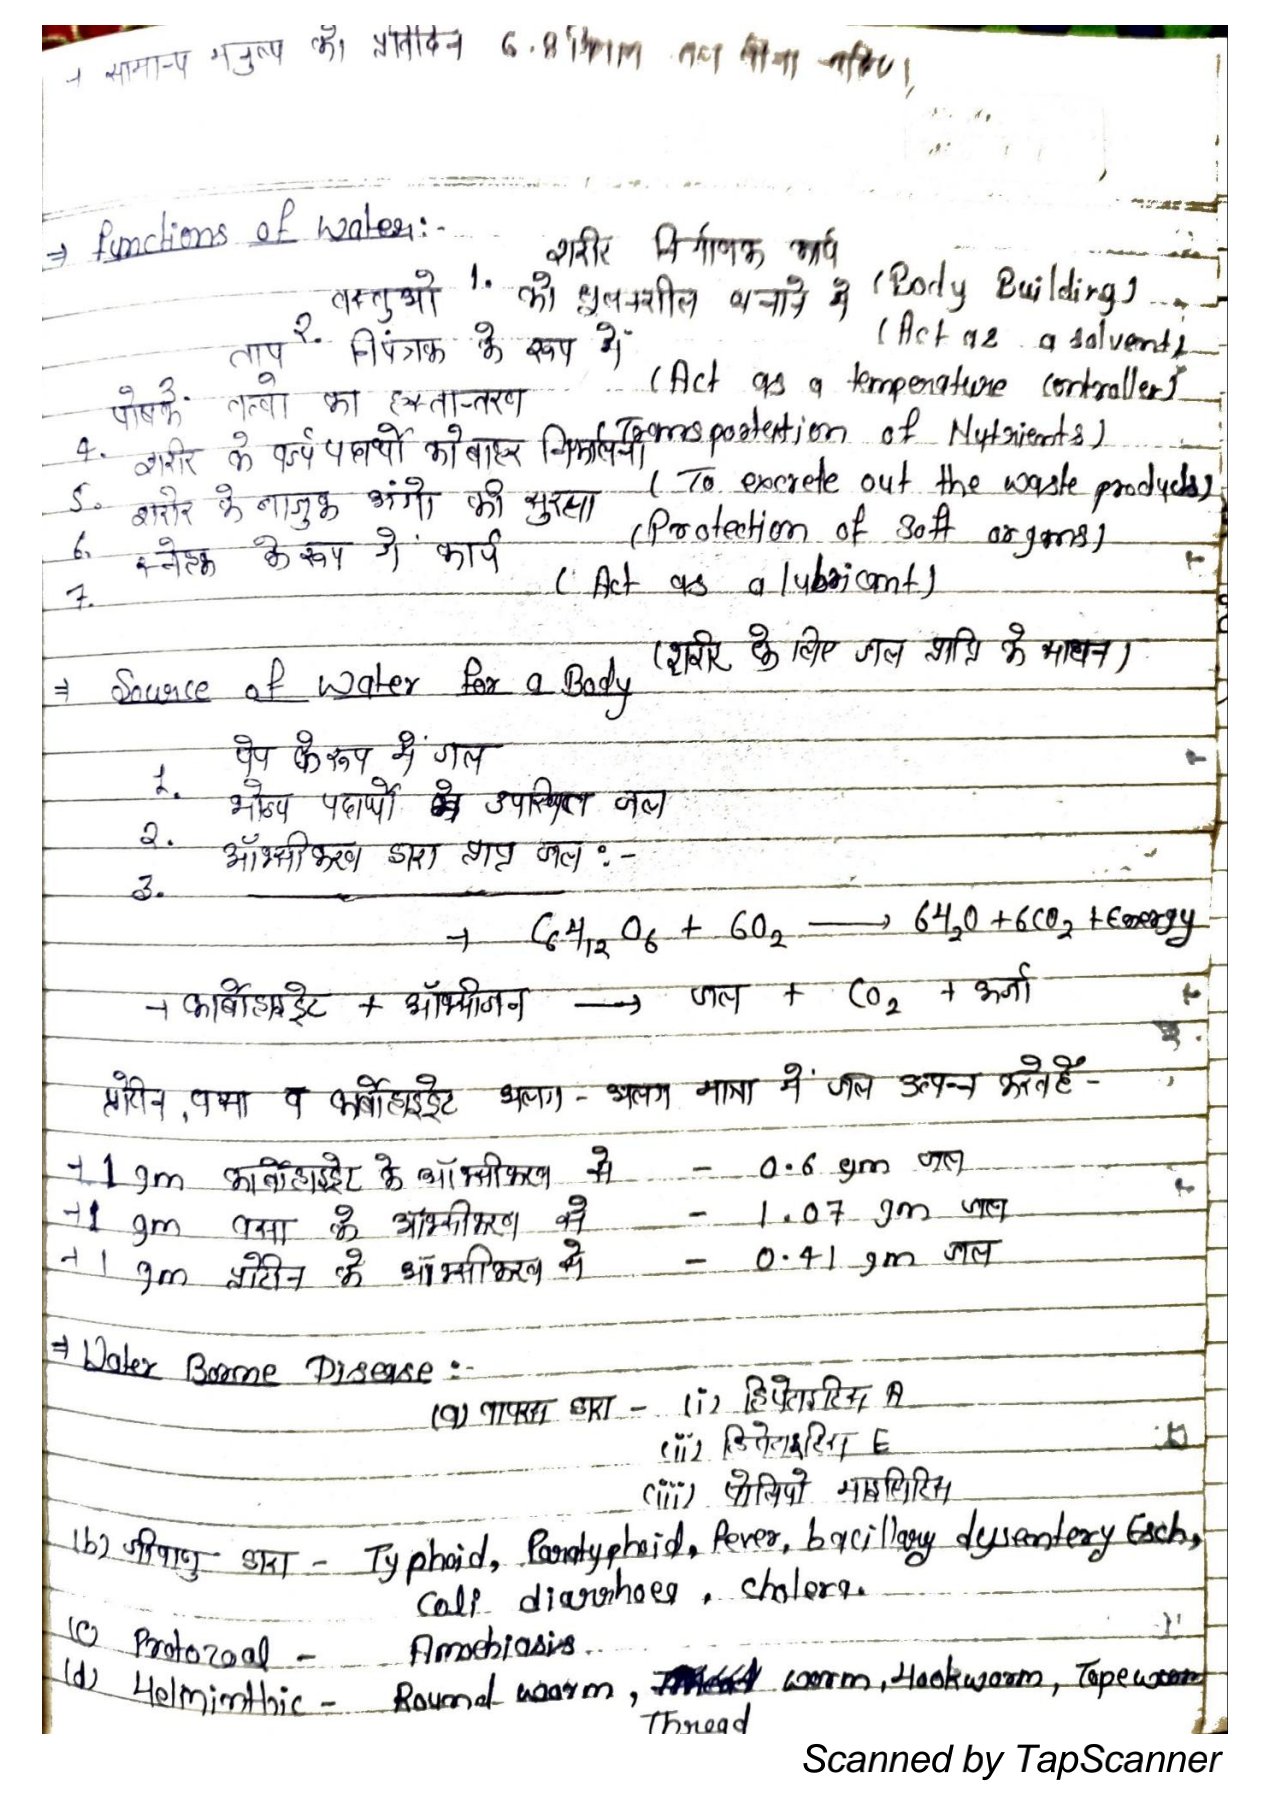 → सामान्य मनुष्य को प्रतिदिन 6-8 गिलास जल पीना चाहिए।
⇒ functions of water:-
1. शरीर निर्माणक कार्य (Body Building)
2. वस्तुओ को घुलनशील बनाने मे (Act as a solvent)
3. ताप नियंत्रक के रूप में (Act as a temperature controller)
4. पोषक तत्वो का हस्तान्तरण (Transportation of Nutrients)
5. शरीर के वर्ज्य पदार्थो को बाहर निकालना (To excrete out the waste products)
6. शरीर के नाजुक अंगो की सुरक्षा (Protection of Soft organs)
7. स्नेहक के रूप में कार्य (Act as a lubricant)
⇒ Source of water for a Body (शरीर के लिए जल प्राप्ति के साधन)
1. पेय के रूप में जल
2. भोज्य पदार्थो मे उपस्थित जल
3. ऑक्सीकरण द्वारा प्राप्त जल :-
→ C6H12O6 + 6O2 ⟶ 6H2O + 6CO2 + Energy
→ कार्बोहाइड्रेट + ऑक्सीजन ⟶ जल + CO2 + ऊर्जा
प्रोटीन, वसा व कार्बोहाइड्रेट अलग-अलग मात्रा में जल उत्पन्न करते हैं -
→ 1 gm कार्बोहाइड्रेट के ऑक्सीकरण से - 0.6 gm जल
→ 1 gm वसा के ऑक्सीकरण से - 1.07 gm जल
→ 1 gm प्रोटीन के ऑक्सीकरण से - 0.41 gm जल
⇒ Water Borne Disease :-
(a) वायरस द्वारा - (i) हिपेटाइटिस A
(ii) हिपेटाइटिस E
(iii) पोलियो माइलिटिस
(b) जीवाणु द्वारा - Typhoid, Paratyphoid, Fever, bacillary dysentery Esch,
Coli diarrhoea, cholera.
(c) Protozoal - Amoebiasis.
(d) Helminthic - Round woorm, Thread worm, Hookworm, Tapeworm
Scanned by TapScanner